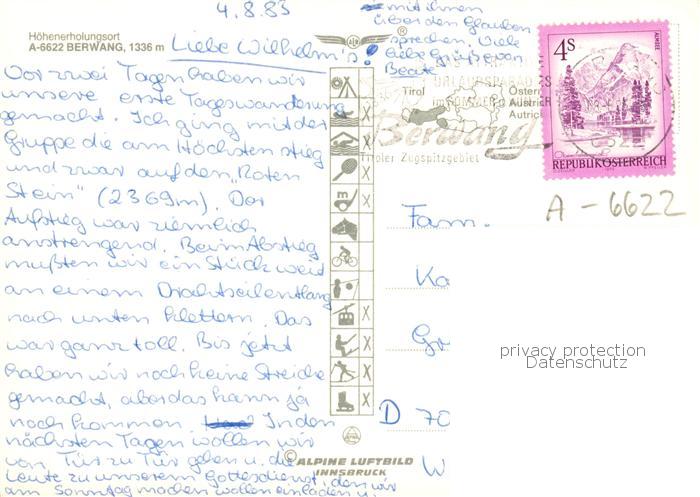 4.8.83
Höhenerholungsort
A-6622 BERWANG, 1336 m
Liebe Wilhelm's!
Vor zwei Tagen haben wir
unsere erste Tageswanderung
gemacht. Ich ging mit der
Gruppe die am Höchsten stieg
und zwar auf den "Roten
Stein" (2369m). Der
Aufstieg war ziemlich
anstrengend. Beim Abstieg
mußten wir ein Stück weit
an einem Drahtseil entlang
nach unten klettern. Das
war ganz toll. Bis jetzt
haben wir noch keine Streiche
gemacht, aber das kann ja
noch kommen. In den
nächsten Tagen wollen wir
von Tür zu Tür gehen u. die
Leute zu unserem Gottesdienst, den wir
am Sonntag machen wollen einladen u.
mit ihnen
über den Glauben
sprechen. Viele
liebe Grüße von
Beate
Tirol
Berwang
Tiroler Zugspitzgebiet
4S
ALMSEE
REPUBLIK ÖSTERREICH
A-6622
Fam.
Ka
Gr
D 70
W
privacy protection
Datenschutz
© ALPINE LUFTBILD
INNSBRUCK